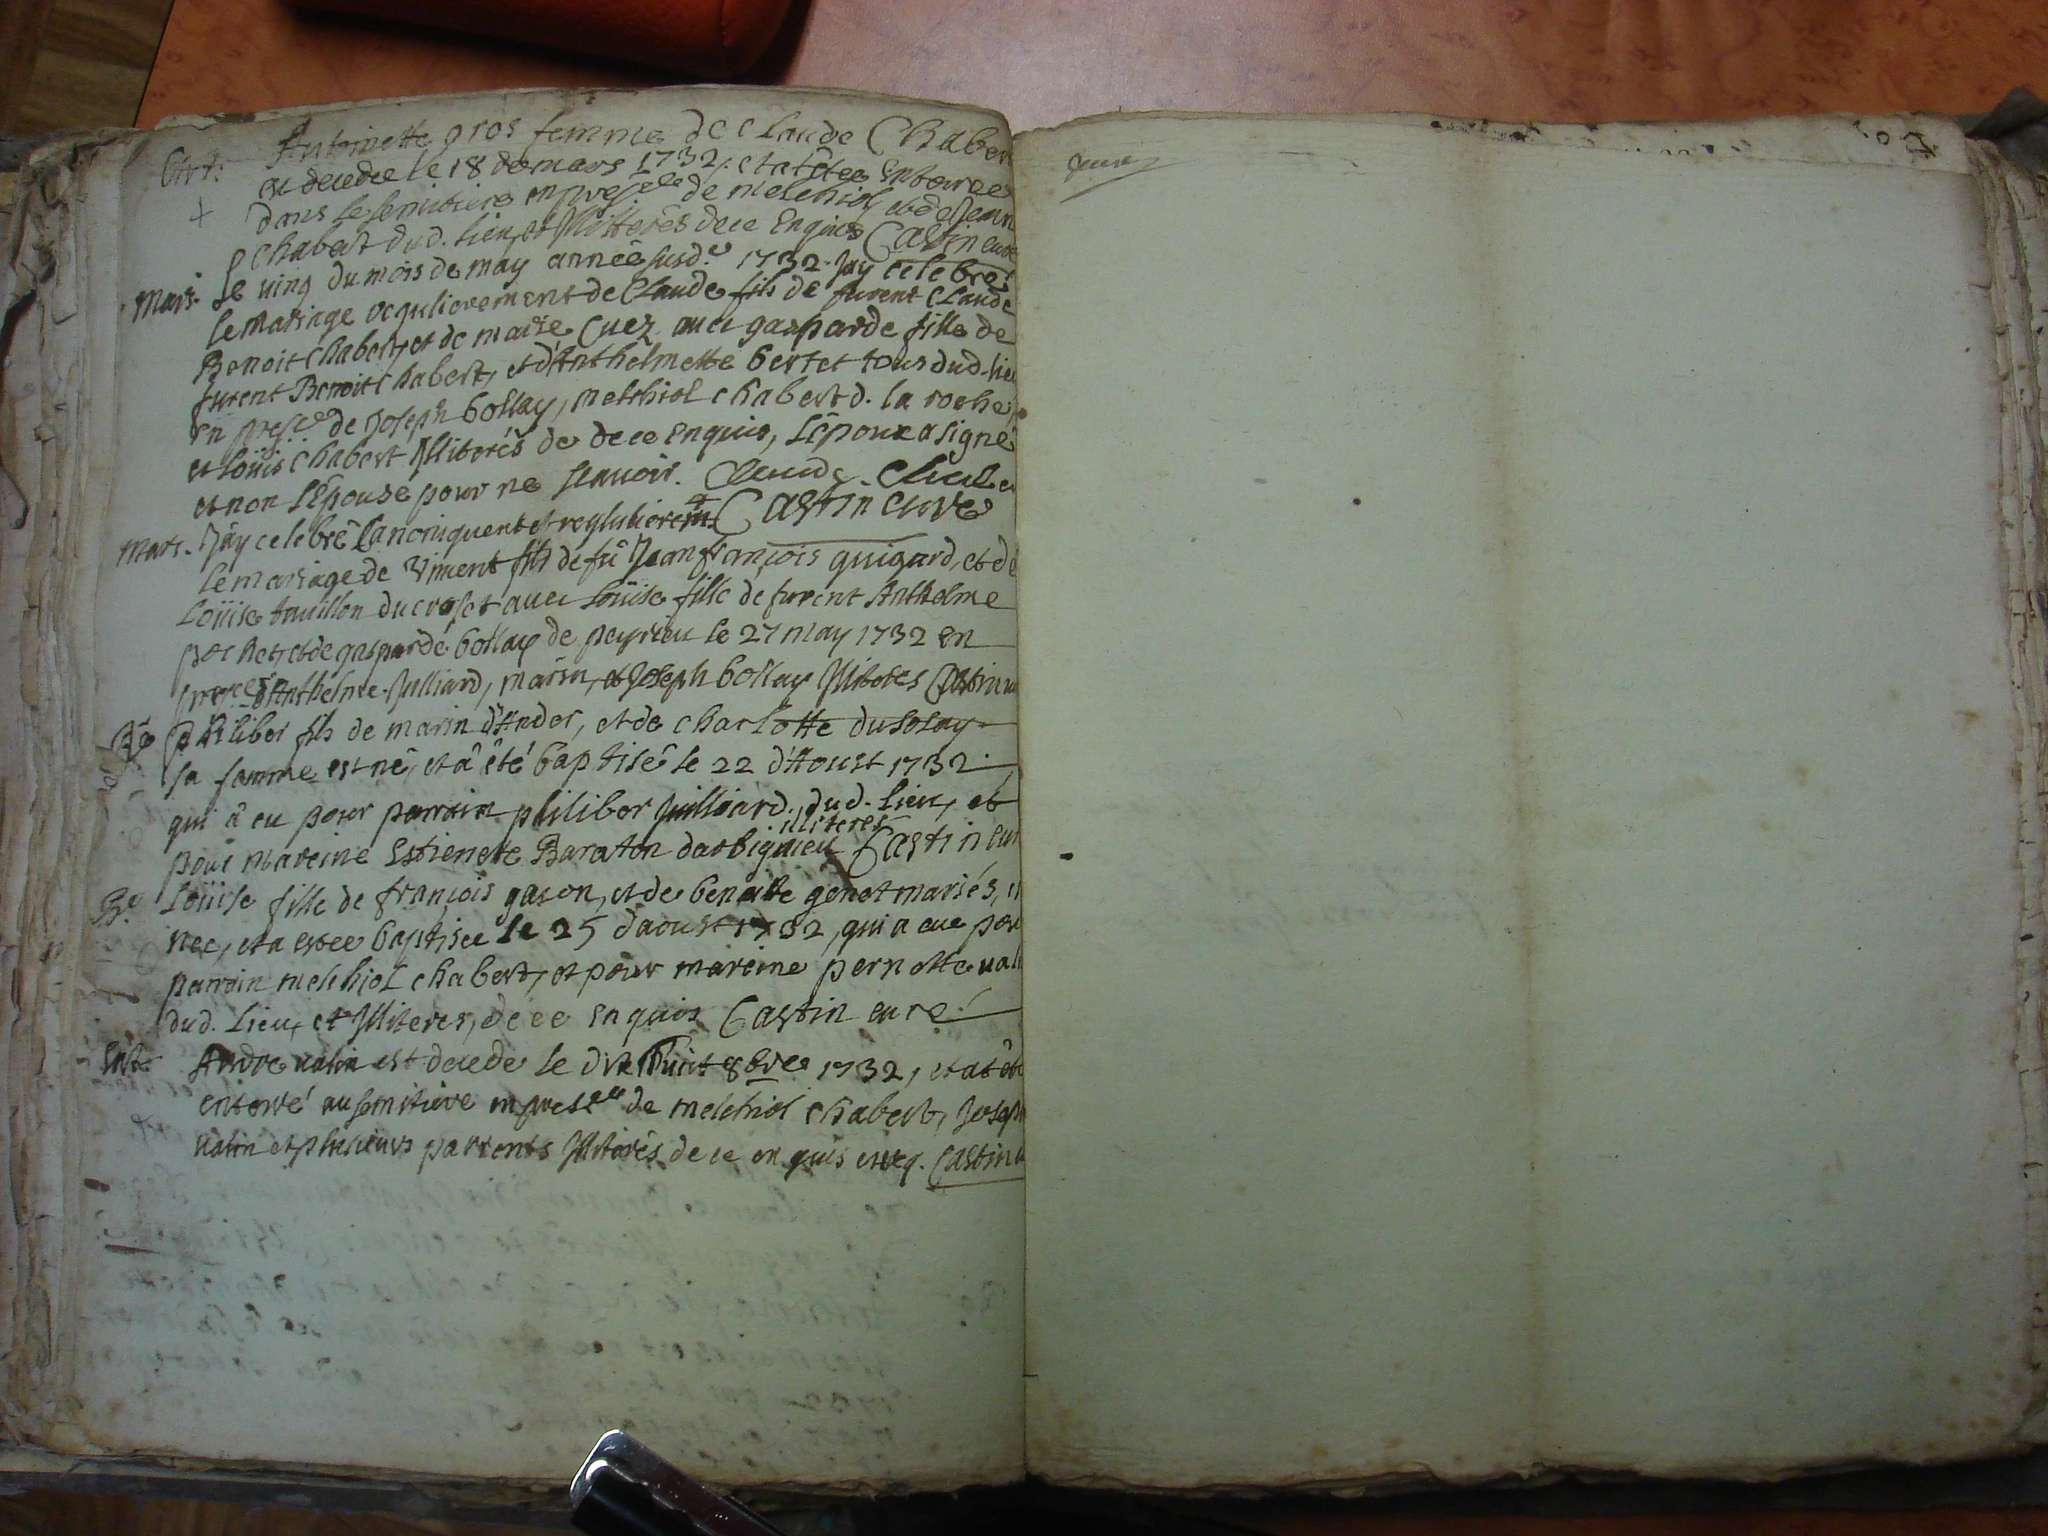 Ent. Antoinette gros femme de Claude Chaber
est decedée le 18 de mars 1732. et a êtée Enterrée
dans le semitiere en presce de melchiol et de Jean
Chabert dud. lieu, et Illiterés de ce Enquis Castin curé
Mari. Le ving du mois de may année susd.e 1732. Jay celebré
le Mariage regulierement de Claude fils de furent Claude
Benoit Chabert, et de marie Cuez avec gasparde fille de
furent Benoit Chabert, et d'Anthelmette bertet tous dud. lieu
en presce de Joseph bollay, melchiol chabert d. la roche,
et Loüis chabert Illiterés de de ce Enquis, L'époux a signé
et non L'Epouse pour ne scavoir. Claude
Castin Curé
Mari. Jay celebré Canoniquent et regulierem.t
le mariage de Vincent fils de fû Jean françois guigard, et de
Loüise touillon du croset avec Loüise fille de furent Anthelme
pochet, et de gasparde bollay de peyrieu le 27 may 1732 en
presce d'Anthelme Julliard, marin, et Joseph bollay Illiteres Castin
Be philiber fils de marin d'Ander, et de charlotte dusolay
sa famme est né, et â êté baptisé le 22 d'Aoust 1732.
qui â eu pour parrain philiber Juilliard. dud. lieu, et
pour mareine Estienete Baraton darbignieu illiteres Castin cur
Be. Loüise fille de françois gason, et de benoitte genet mariés,
nee, et a estee baptisee le 25 daoust 1732, qui a eue pour
parrain melchiol chabert, et pour mareine pernette
dud. Lieu, et Illiteres, de ce Enquis Castin curé.
Ent. Andre valin est decede le dix huit 8bre 1732, et at êté
enterré au semitiere en presce de melchiol chabert, Joseph
valin et plusieurs parrents Illiterés de ce en quis Castin